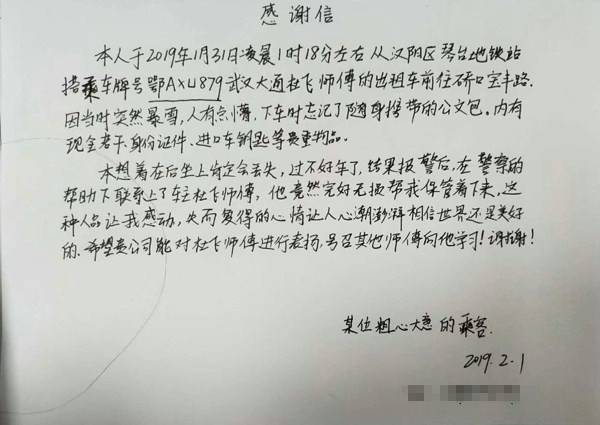 感谢信
本人于2019年1月31日凌晨1时18分左右从汉阳区琴台地铁站
搭乘车牌号鄂AX4879武汉大通杜飞师傅的出租车前往硚口宝丰路.
因当时突然暴雪,人有点懵,下车时忘记了随身携带的公文包.内有
现金若干、身份证件、进口车钥匙等贵重物品。
本想着在后坐上肯定会丢失,过不好年了,结果报警后,在警察的
帮助下联系上了车主杜飞师傅,他竟然完好无损帮我保管着下来,这
种人品让我感动,失而复得的心情让人心潮澎湃相信世界还是美好
的.希望贵公司能对杜飞师傅进行表扬,号召其他师傅向他学习!谢谢!
某位粗心大意的乘客.
2019.2.1